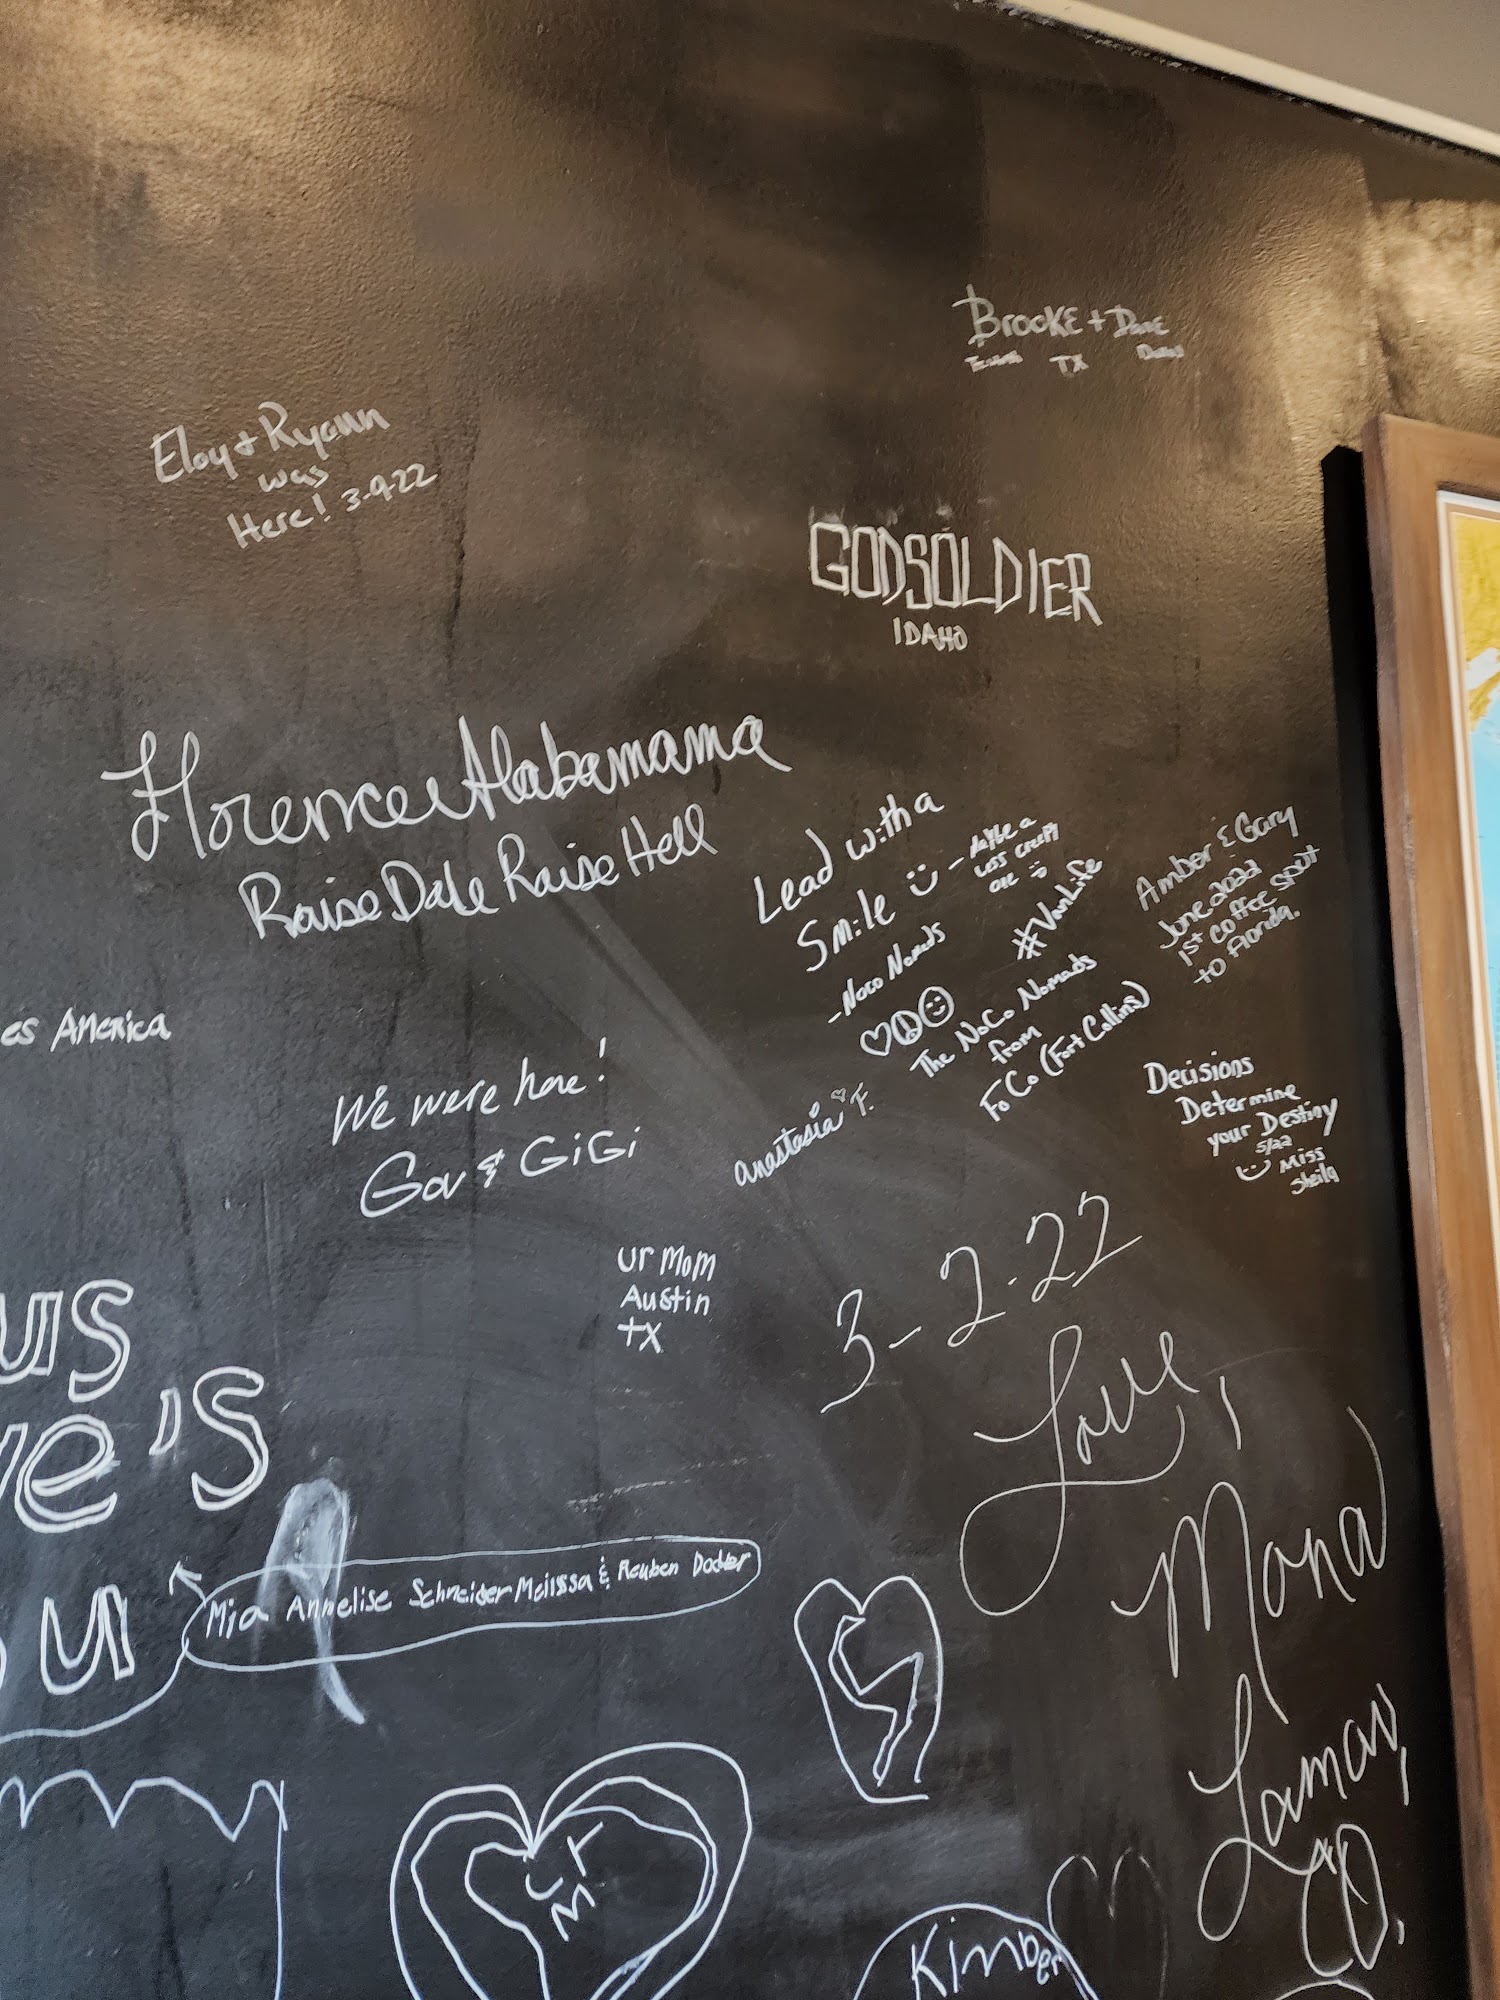 Brooke + Dane
TX
Eloy + Ryann
was
Here! 3-9-22
GODSOLDIER
IDAHO
Florence Alabamama
Raise Dale Raise Hell
Lead with a
Smile :) - maybe a
less creepy
one :)
- Noco Nomads
#VanLife
The NoCo Nomads
from
FoCo (Fort Collins)
Amber & Gary
June 2022
1st coffee spot
to Florida.
es America
We were here!
Gav & GiGi
anastasia F.
Decisions
Determine
your Destiny
5/22
Miss
Sheila
ur mom
Austin
TX
3-2-22
Love,
Mona
Lamar,
CO.
us
ve's
u
Mia Annelise Schneider Melissa & Reuben Docter
Kimber